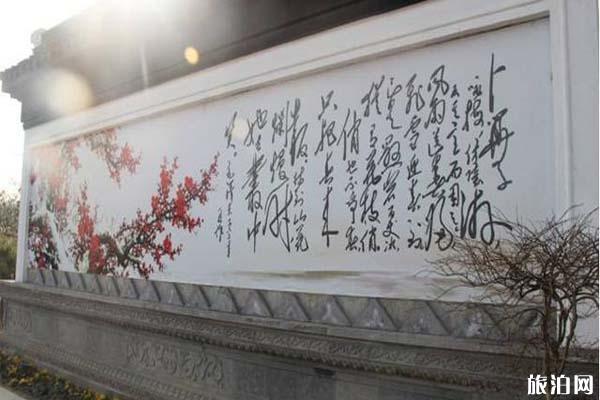 卜算子
风雨送春归
飛雪迎春到
已是悬崖百丈冰
猶有花枝俏
俏也不争春
只把春来
报待到山花
烂漫时
她在丛中
笑
旅泊网